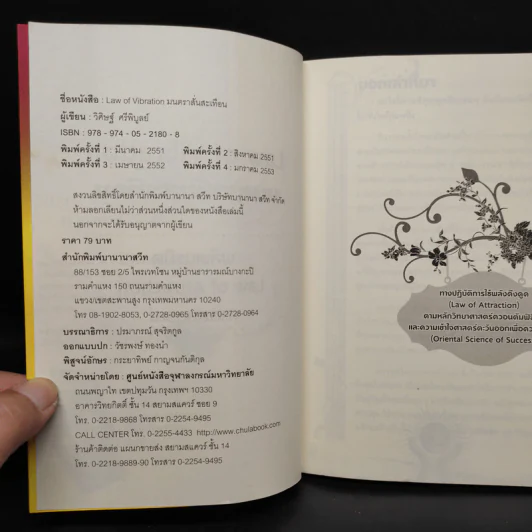 ชื่อหนังสือ : Law of Vibration มนตราสั่นสะเทือน
ผู้เขียน : วิศิษฐ์ ศรีพิบูลย์
ISBN : 978 - 974 - 05 - 2180 - 8
พิมพ์ครั้งที่ 1 : มีนาคม 2551 พิมพ์ครั้งที่ 2 : สิงหาคม 2551
พิมพ์ครั้งที่ 3 : เมษายน 2552 พิมพ์ครั้งที่ 4 : มกราคม 2553
สงวนลิขสิทธิ์โดยสำนักพิมพ์บานานา สวีท บริษัทบานานา สวีท จำกัด
ห้ามลอกเลียนไม่ว่าส่วนหนึ่งส่วนใดของหนังสือเล่มนี้
นอกจากจะได้รับอนุญาตจากผู้เขียน
ราคา 79 บาท
สำนักพิมพ์บานานาสวีท
88/153 ซอย 2/5 ไพรเวทโซน หมู่บ้านธารารมณ์บางกะปิ
รามคำแหง 150 ถนนรามคำแหง
แขวง/เขตสะพานสูง กรุงเทพมหานคร 10240
โทร 08-1902-8053, 0-2728-0965 โทรสาร 0-2728-0964
บรรณาธิการ : ปรมาภรณ์ สุจริตกูล
ออกแบบปก : วัชรพงษ์ ทองนำ
พิสูจน์อักษร : กระยาทิพย์ กาญจนกันติกุล
จัดจำหน่ายโดย : ศูนย์หนังสือจุฬาลงกรณ์มหาวิทยาลัย
ถนนพญาไท เขตปทุมวัน กรุงเทพฯ 10330
อาคารวิทยกิตติ์ ชั้น 14 สยามสแควร์ ซอย 9
โทร. 0-2218-9868 โทรสาร 0-2254-9495
CALL CENTER โทร. 0-2255-4433 http://www.chulabook.com
ร้านค้าติดต่อ แผนกขายส่ง สยามสแควร์ ชั้น 14
โทร. 0-2218-9889-90 โทรสาร 0-2254-9495
ทางปฏิบัติการใช้พลังดึงดูด
(Law of Attraction)
ตามหลักวิทยาศาสตร์ควอนตัมฟิสิ
และความเข้าใจศาสตร์ตะวันออกเพื่อคว
(Oriental Science of Succes